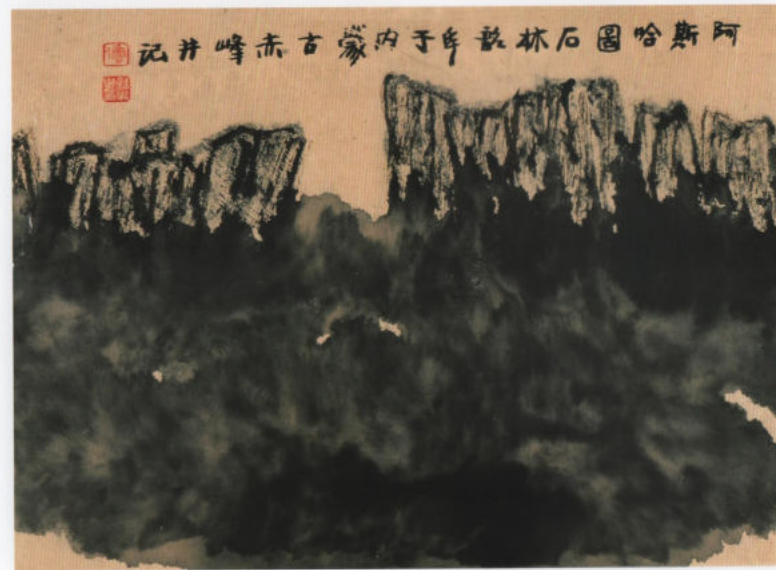 阿斯哈圖石林于内蒙古赤峰并记